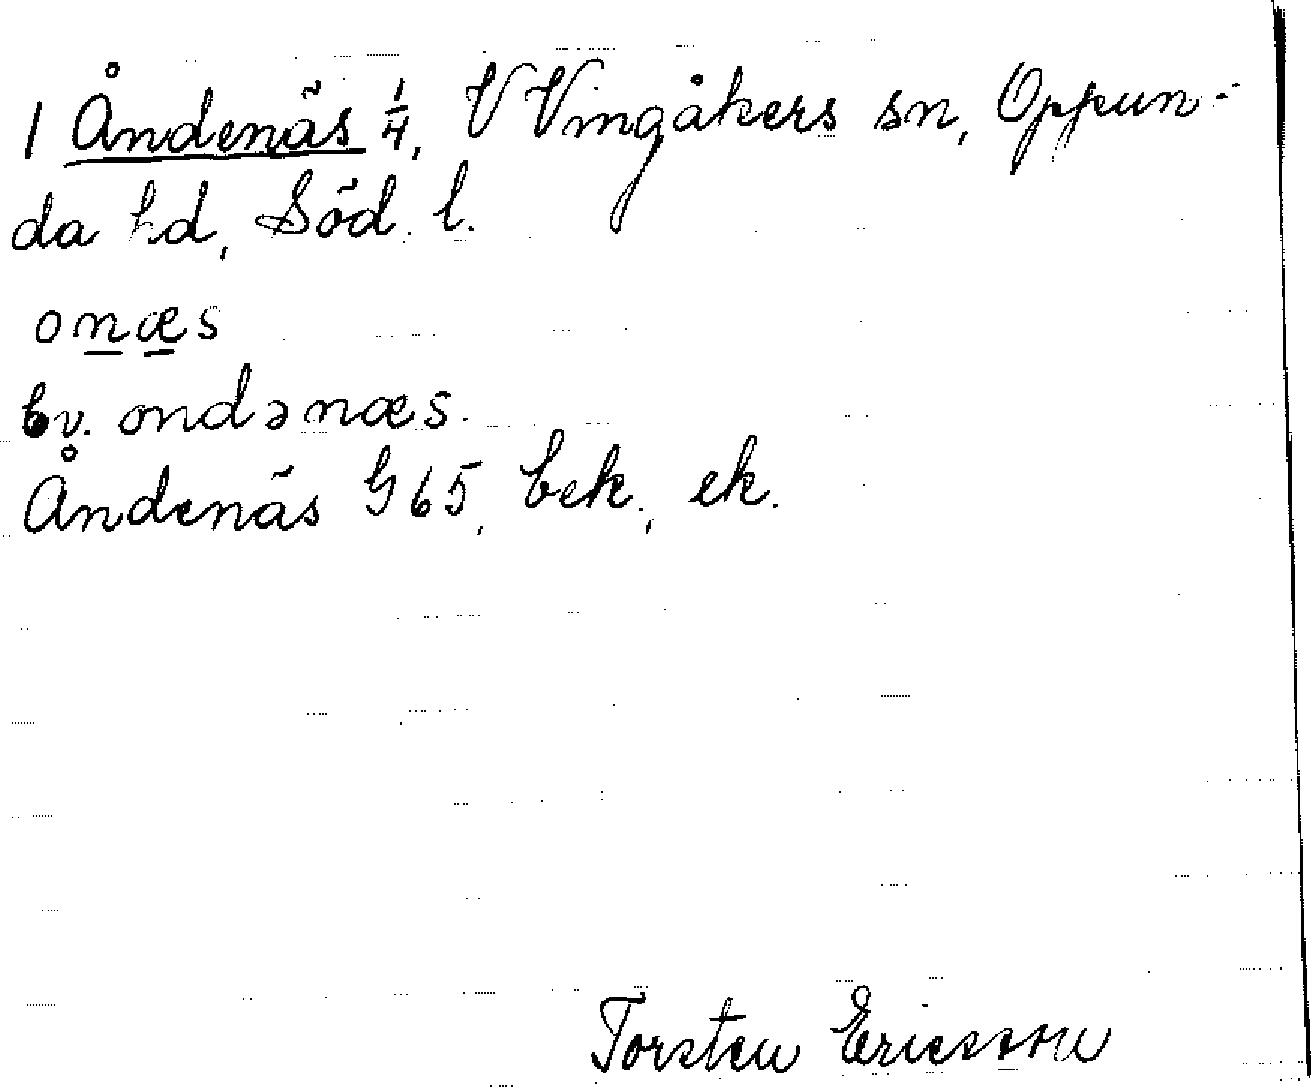 1 Åndenäs 1/4, V Vingåkers sn, Oppun-
da hd, Söd. l.
onæs
bv. ondənæs.
Åndenäs G 65, bek., ek.
Torsten Ericsson